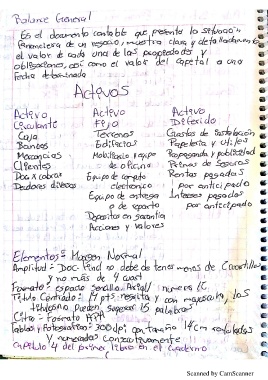 Balance General
Es el documento contable que presenta la situación
financiera de un negocio, muestra clara y detalladamente
el valor de cada una de las propiedades y
obligaciones, así como el valor del capital a una
fecha determinada
Activos
Activo Activo Activo
Circulante Fijo Diferido
Caja Terrenos Gastos de Instalación
Bancos Edificios Papelería y útiles
Mercancías Mobiliario y equipo Propaganda y publicidad
Clientes de oficina Primas de Seguros
Doc x cobrar Equipo de computo Rentas pagadas
Deudores diversos electronico por anticipado
Equipo de entrega Intereses pagados
o de reparto por anticipado
Depositos en garantía
Acciones y valores
Elementos: Margen Normal
Amplitud: Doc. Final no debe de tener menos de cuartillas
y no más de
Formato: espacio sencillo Arial / numero 12
Título Centrado: 14 pts negrita y con mayuscula, los
títulos no pueden superar 15 palabras
Citro - Formato APA
Tablas y Fotografías: 300 dpi con tamaño 14cm
y numeradas consecutivamente
Capitulo 4 del primer libro en el cuaderno
Scanned by CamScanner